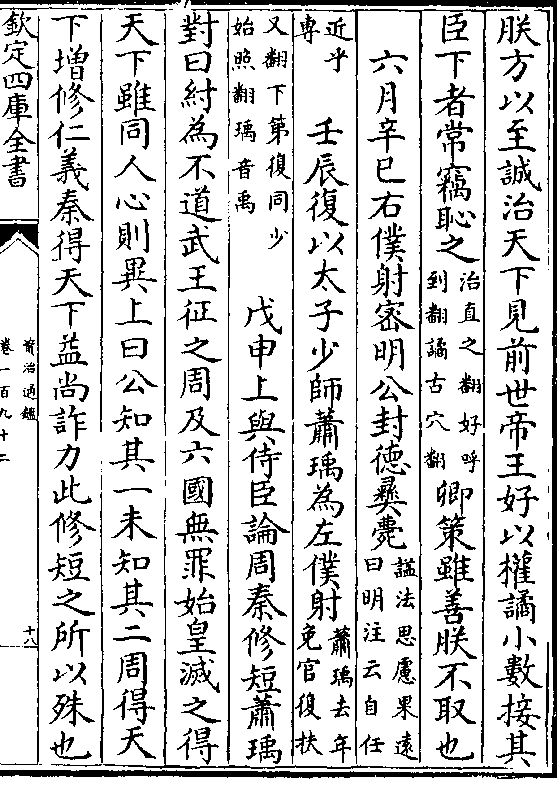 朕方以至誠治天下見前世帝王好以權譎小數接其
臣下者常竊恥之治直之翻好呼到翻譎古穴翻卿策雖善朕不取也
六月辛巳右僕射密明公封德彞薨諡法思慮果遠曰明注云自任
近乎專壬辰復以太子少師蕭瑀為左僕射蕭瑀去年免官復扶
又翻下第復同少始照翻瑀音禹戊申上與侍臣論周秦修短蕭瑀
對曰紂為不道武王征之周及六國無罪始皇滅之得
天下雖同人心則異上曰公知其一未知其二周得天
下增修仁義秦得天下益尚詐力此修短之所以殊也
欽定四庫全書
資治通鑑
卷一百九十二
十八